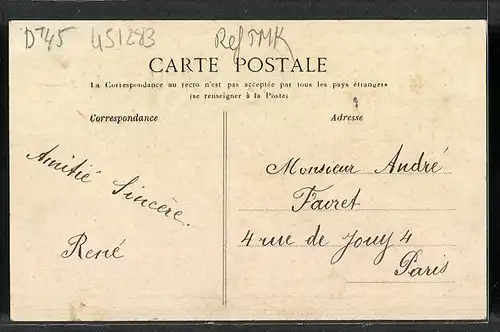 DT45 451283 Ref TMK
CARTE POSTALE
La Correspondance au recto n'est pas acceptée par tous les pays étrangers
(se renseigner à la Poste)
Correspondance
Amitié Sincère.
René
Adresse
Monsieur André
Favret
4 rue de Jouy 4
Paris